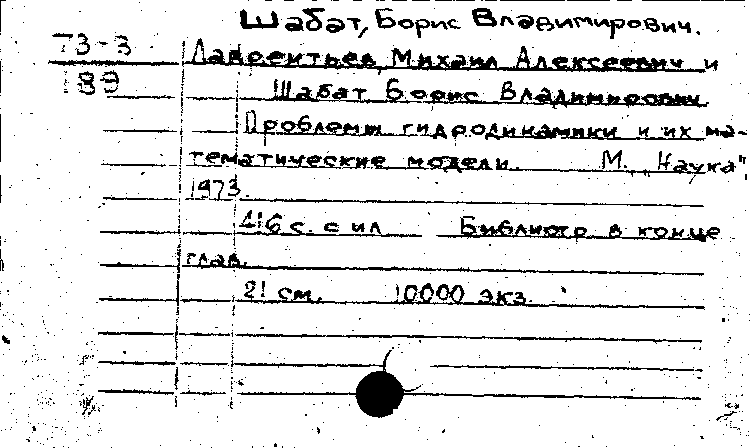 Шабат, Борис Владимирович.
73-3
189
Лаврентьев, Михаил Алексеевич и
Шабат Борис Владимирович.
Проблемы гидродинамики и их ма-
тематические модели. М., "Наука",
1973.
416 с. с ил Библиогр в конце
глав.
21 см. 10000 экз.